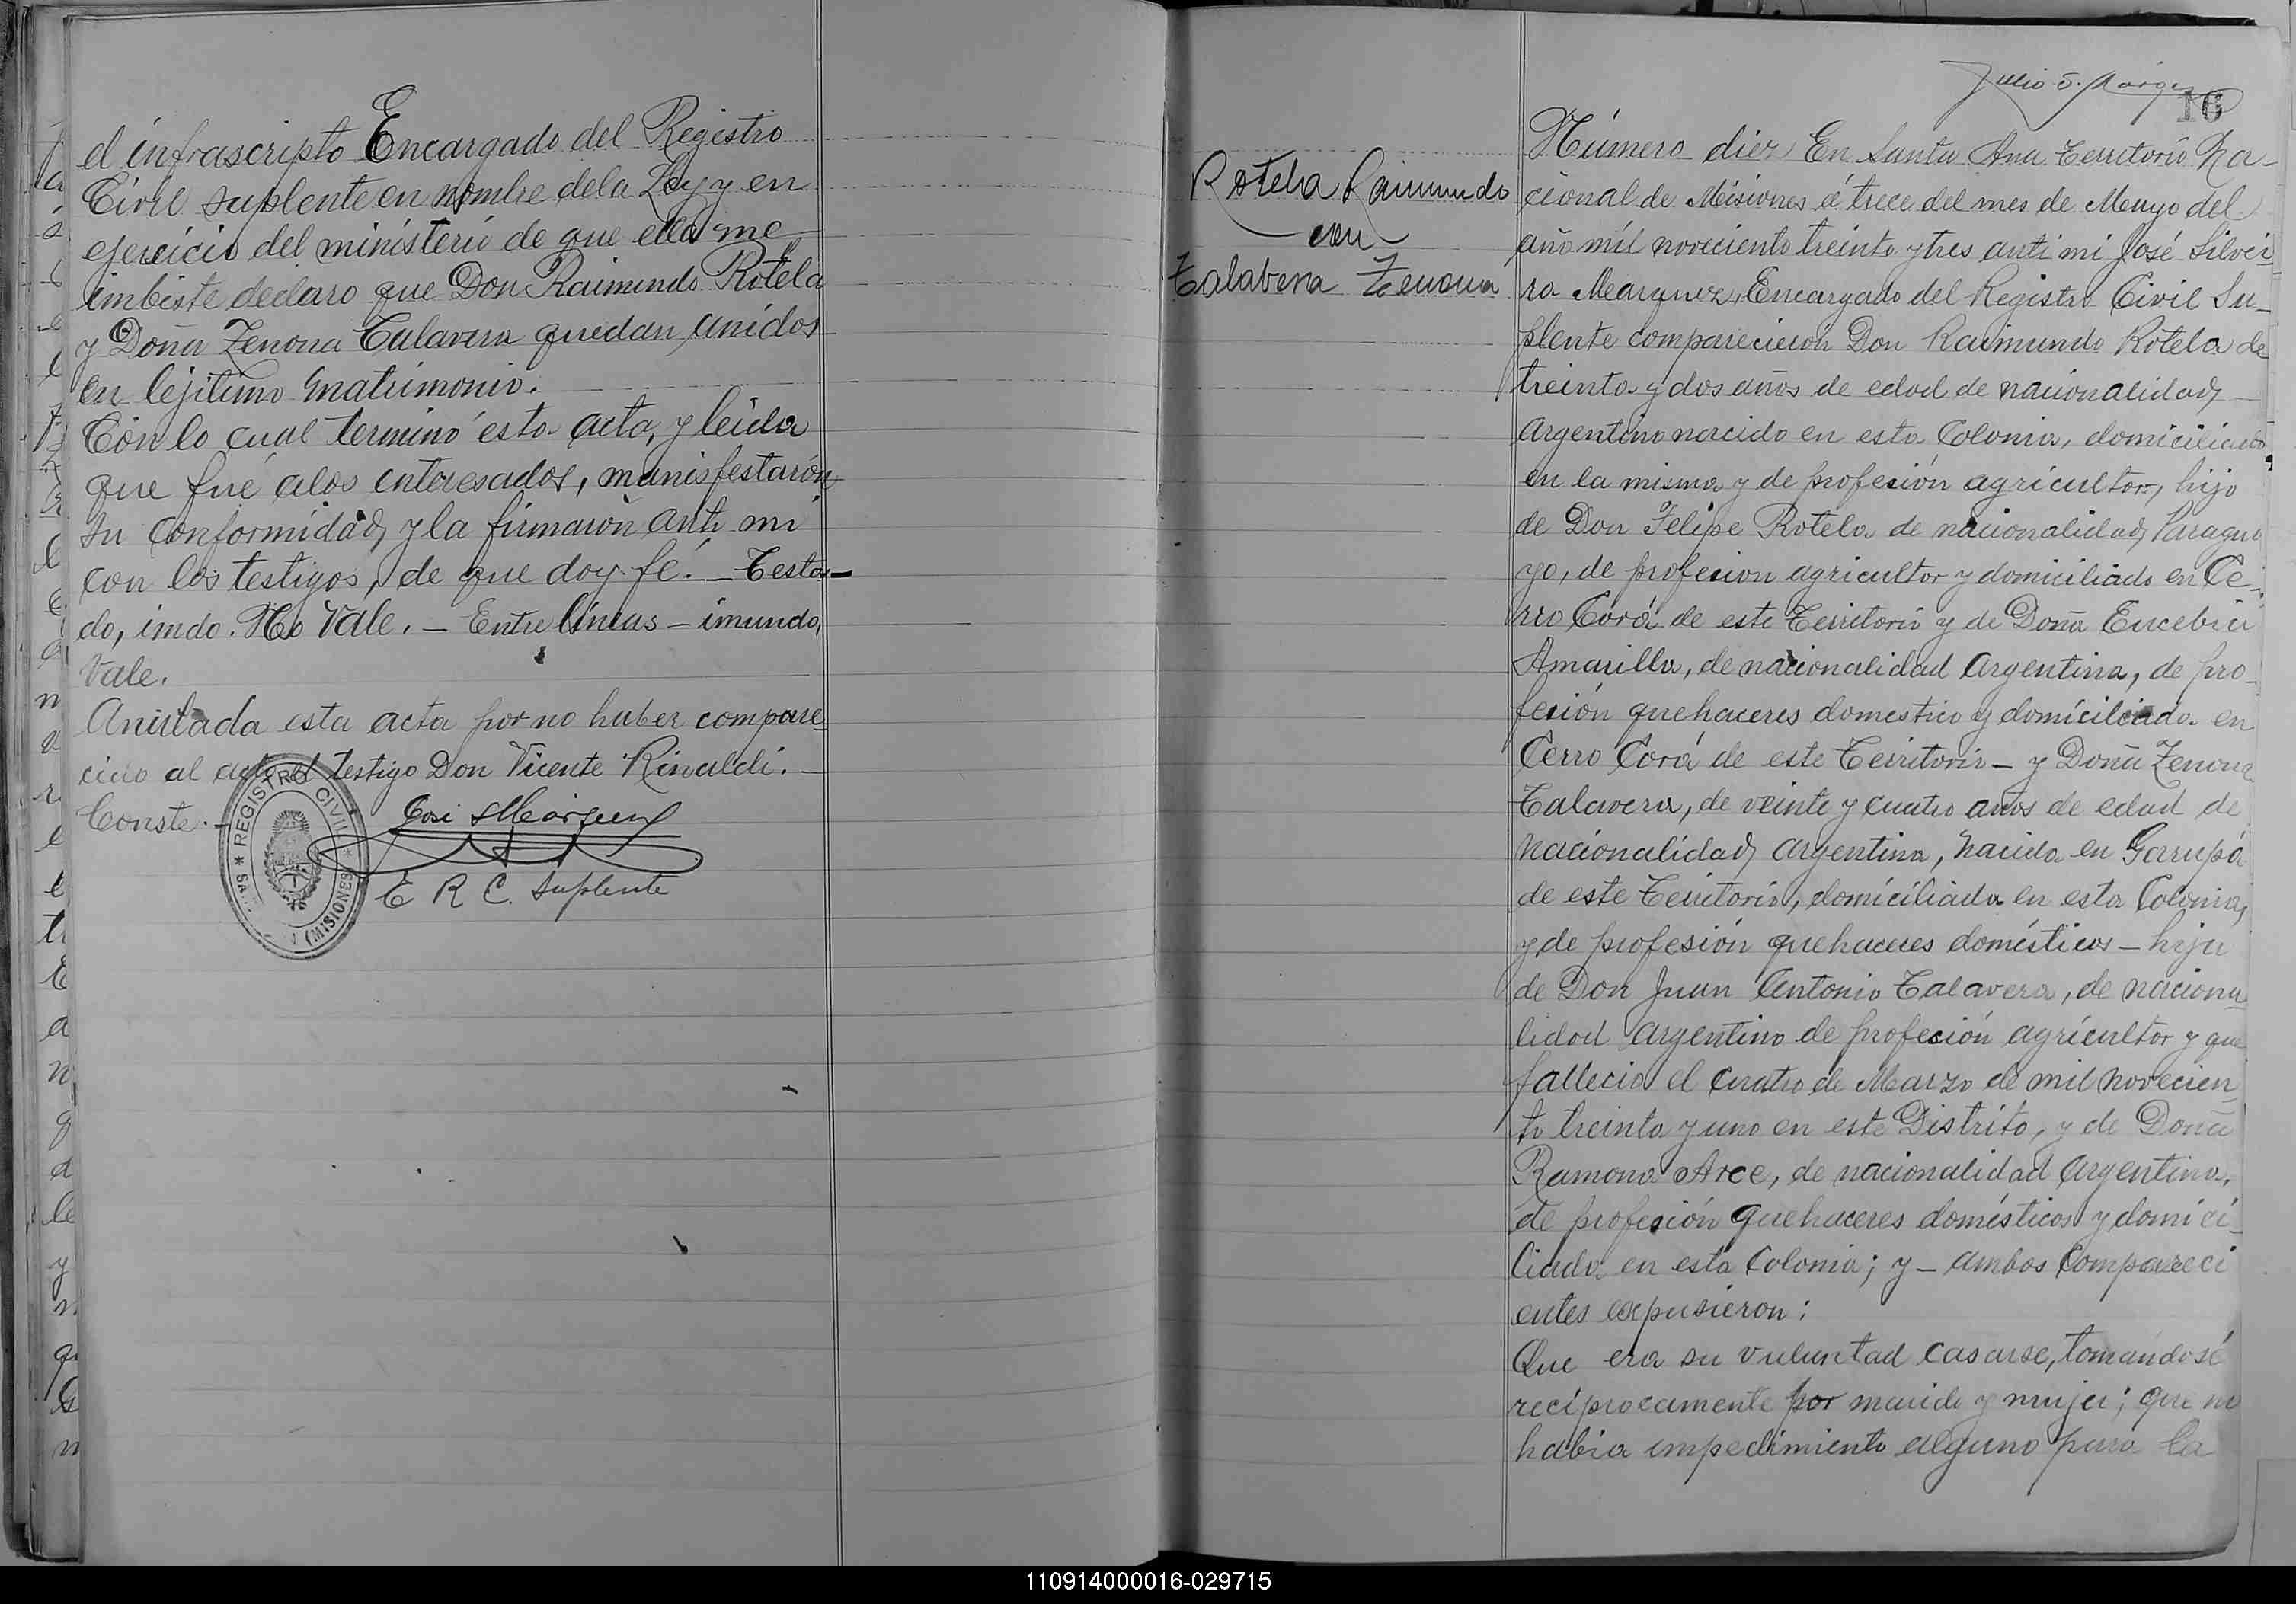 el infrascripto Encargado del Registro
Civil suplente en nombre dela Ley y en
ejercicio del ministerio de que ella me
imbiste declaro que Don Raimundo Rotela
y Doña Zenona Talavera quedan unidos
en lejitimo matrimonio.
Con lo cual terminó esta acta, y leida
que fué alos interesados, manisfestarón
su conformidad, y la firmarón anti mi
con los testigos, de que doy fé. — Testa—
do, imdo. No Vale. — Entre líneas — imundo,
Vale.
Anulada esta acta por no haber compare
cido al acto el testigo Don Vicente Rinaldi. —
Conste. —
José Marquez
E R C. Suplente
* REGISTRO CIVIL *
(MISIONES)
16
Rotela Raimundo
con
Talabera Zenona
Número diez En Santa Ana Territorio Na-
cional de Misiones á trece del mes de Mayo del
año mil noveciento treinta y tres anti mi José Silvei-
ra Marquez, Encargado del Registro Civil Su-
plente comparecierón Don Raimundo Rotela de
treinta y dos años de edad de nacionalidad,
argentino nacido en esta Colonia, domiciliado
en la misma y de profeción agricultor, hijo
de Don Felipe Rotela de nacionalidad, Paragua
yo, de profecion agricultor y domiciliado en Ce-
rro Corá de este Territorio y de Doña Eucebia
Amarilla, de nacionalidad argentina, de pro-
feción quehaceres domestico y domiciliada en
Cerro Corá de este Territorio — y Doña Zenona
Talavera, de veinte y cuatro años de edad de
nacionalidad, argentina, nacida en Garupá
de este Territorio, domiciliada en esta Colonia,
y de profesión quehaceres domésticos — hija
de Don Juan Antonio Talavera, de naciona
lidad argentino de profeción agricultor y que
fallecio el cuatro de Marzo de mil novecien
to treinta y uno en este Distrito, y de Doña
Ramona Arce, de nacionalidad argentina,
de profeción quehaceres domésticos y domici-
liada en esta Colonia; y — ambos compareci
entes expusieron:
Que era su voluntad casarse, tomandosé
recíprocamente por marido y mujer; que no
habia impedimiento alguno para la
110914000016-029715